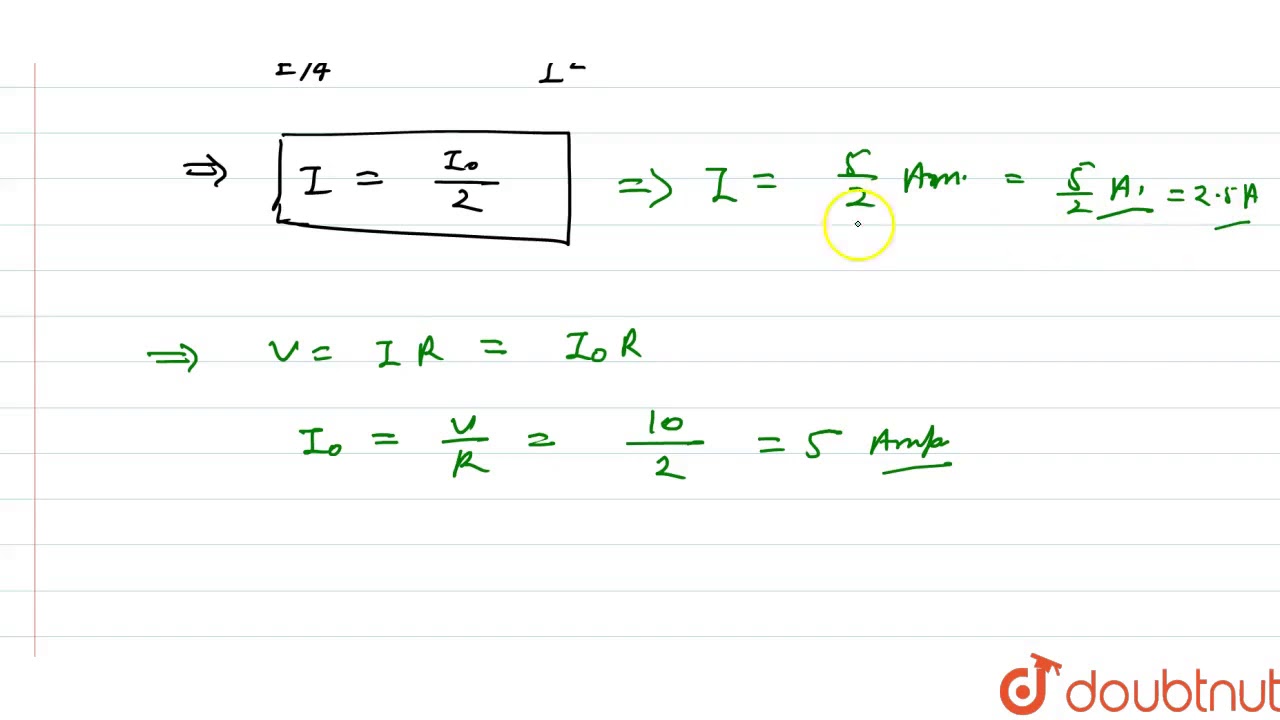 ⇒ I = I₀/2 ⇒ I = 5/2 Am. = 5/2 A. = 2.5A
⇒ V = IR = I₀R
I₀ = V/R = 10/2 = 5 Amp
doubtnut